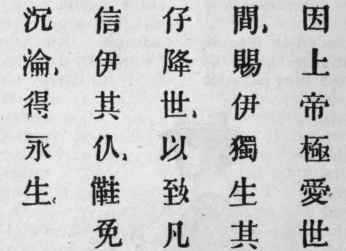 因上帝極愛世
間,賜伊獨生其
仔降世,以致凡
信伊其仈,⿰亻鞋免
沉淪,得永生。